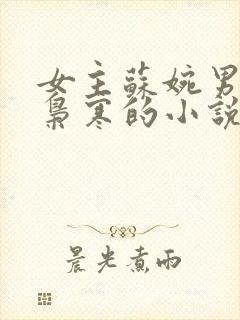 女主蘇婉男
梟寒的小說
晨光煮雨